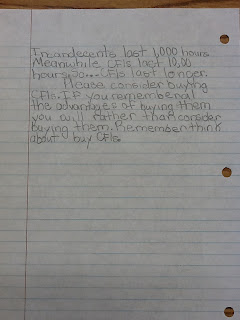 Incandecents last 1,000 hours
Meanwhile CFls last 10,00
hours, so... CFls last longer.
Please consider buying
CFls. If you remember al
the advantages of buying them
you will rather than consider
buying them. Remember think
about buy CFls